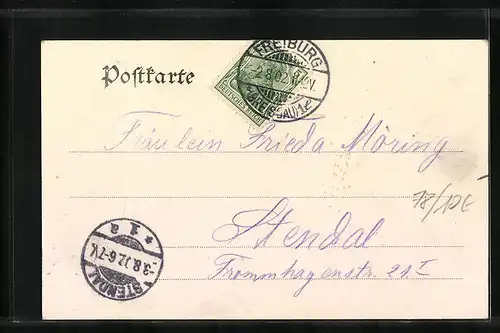 Postkarte
FREIBURG
2.8.02.
(BREISGAU)1c
DEUTSCHES REICH
Fräulein Frieda Möring
78/
Stendal
Frommhagenstr. 21 I
* 1 a
-3.8.02.6-7V.
STENDAL